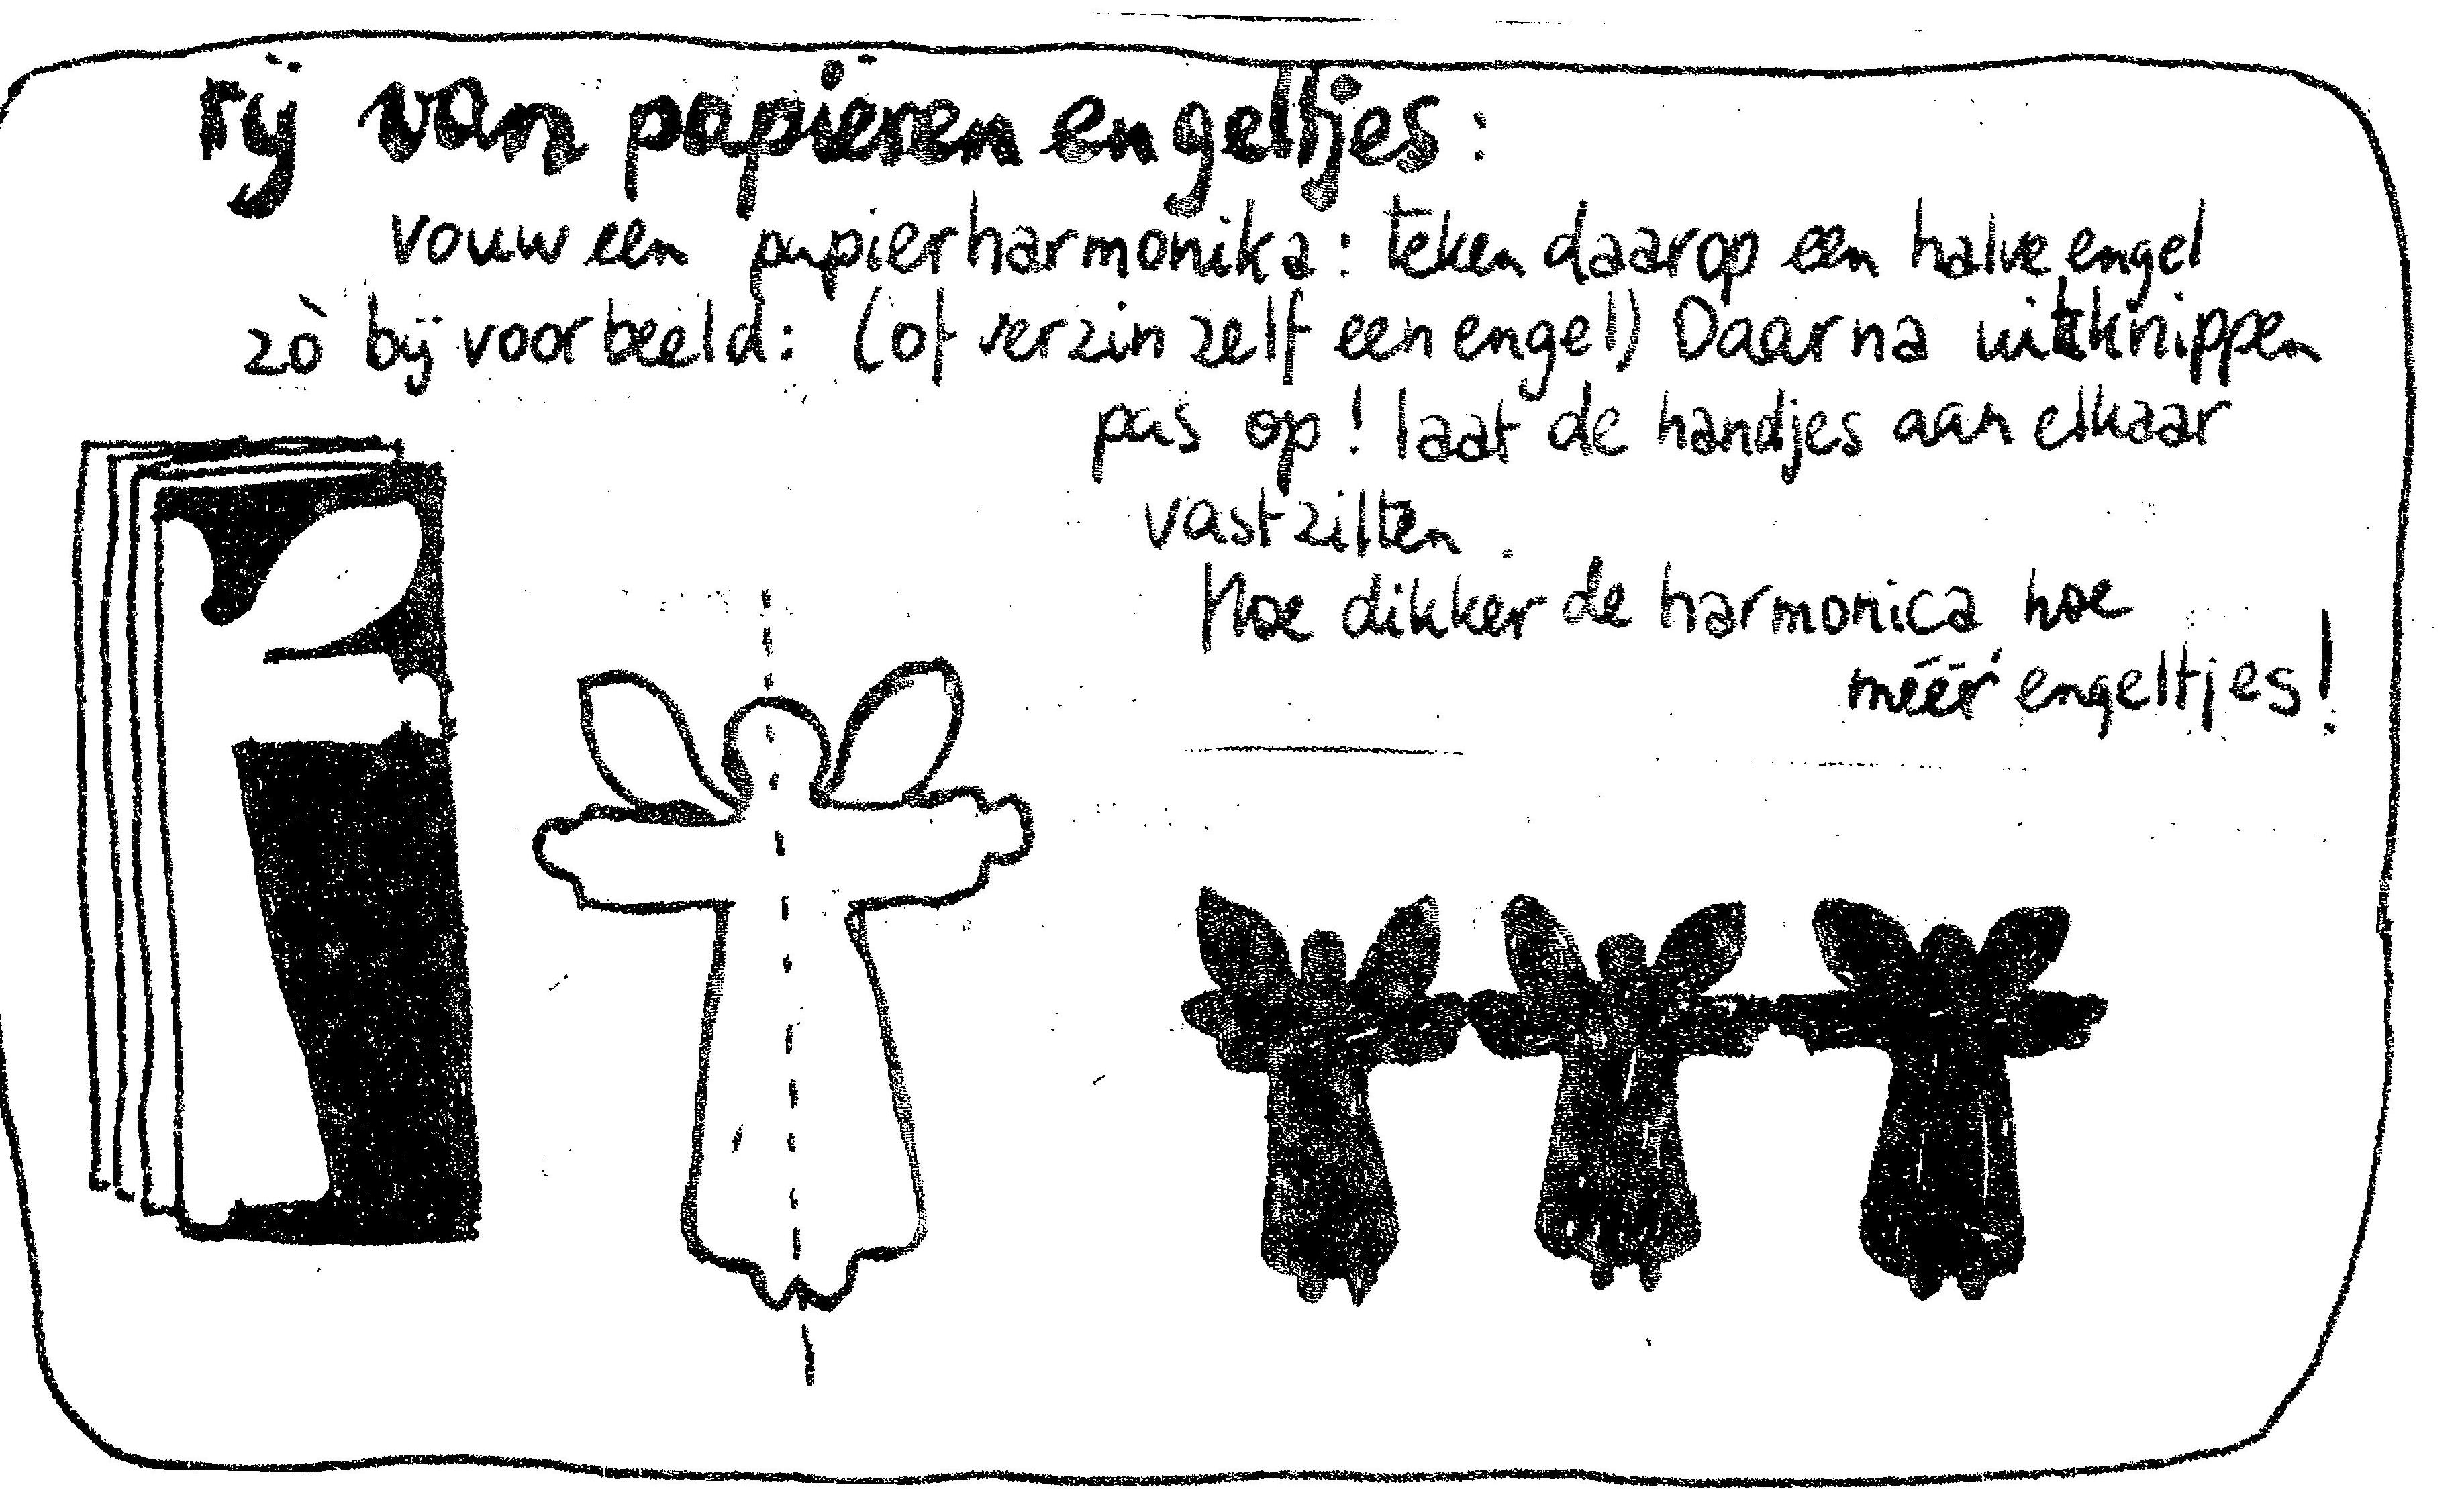 rij van papieren engeltjes:
vouw een papierharmonika: teken daarop een halve engel
zò bijvoorbeeld: (of verzin zelf een engel) Daarna uitknippen
pas op! laat de handjes aan elkaar
vastzitten.
Hoe dikker de harmonica hoe
méér engeltjes!